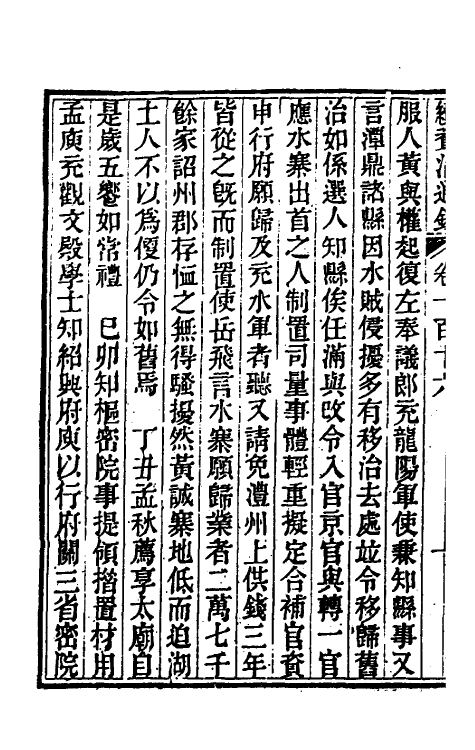 續資治通鑑　卷一百十六
服人黃與權起復左奉議郎充龍陽軍使兼知縣事又
言潭鼎諸縣因水賊侵擾多有移治去處並令移歸舊
治如係選人知縣俟任滿與改令入官京官與轉一官
應水寨出首之人制置司量事體輕重擬定合補官資
申行府願歸及充水軍者聽又請免澧州上供錢三年
皆從之旣而制置使岳飛言水寨願歸業者二萬七千
餘家詔州郡存恤之無得騷擾然黃誠寨地低而迫湖
土人不以爲便仍令如舊焉　丁丑孟秋薦享太廟自
是歲五饗如常禮　己卯知樞密院事提領措置材用
孟庾充觀文殿學士知紹興府庾以行府關三省密院